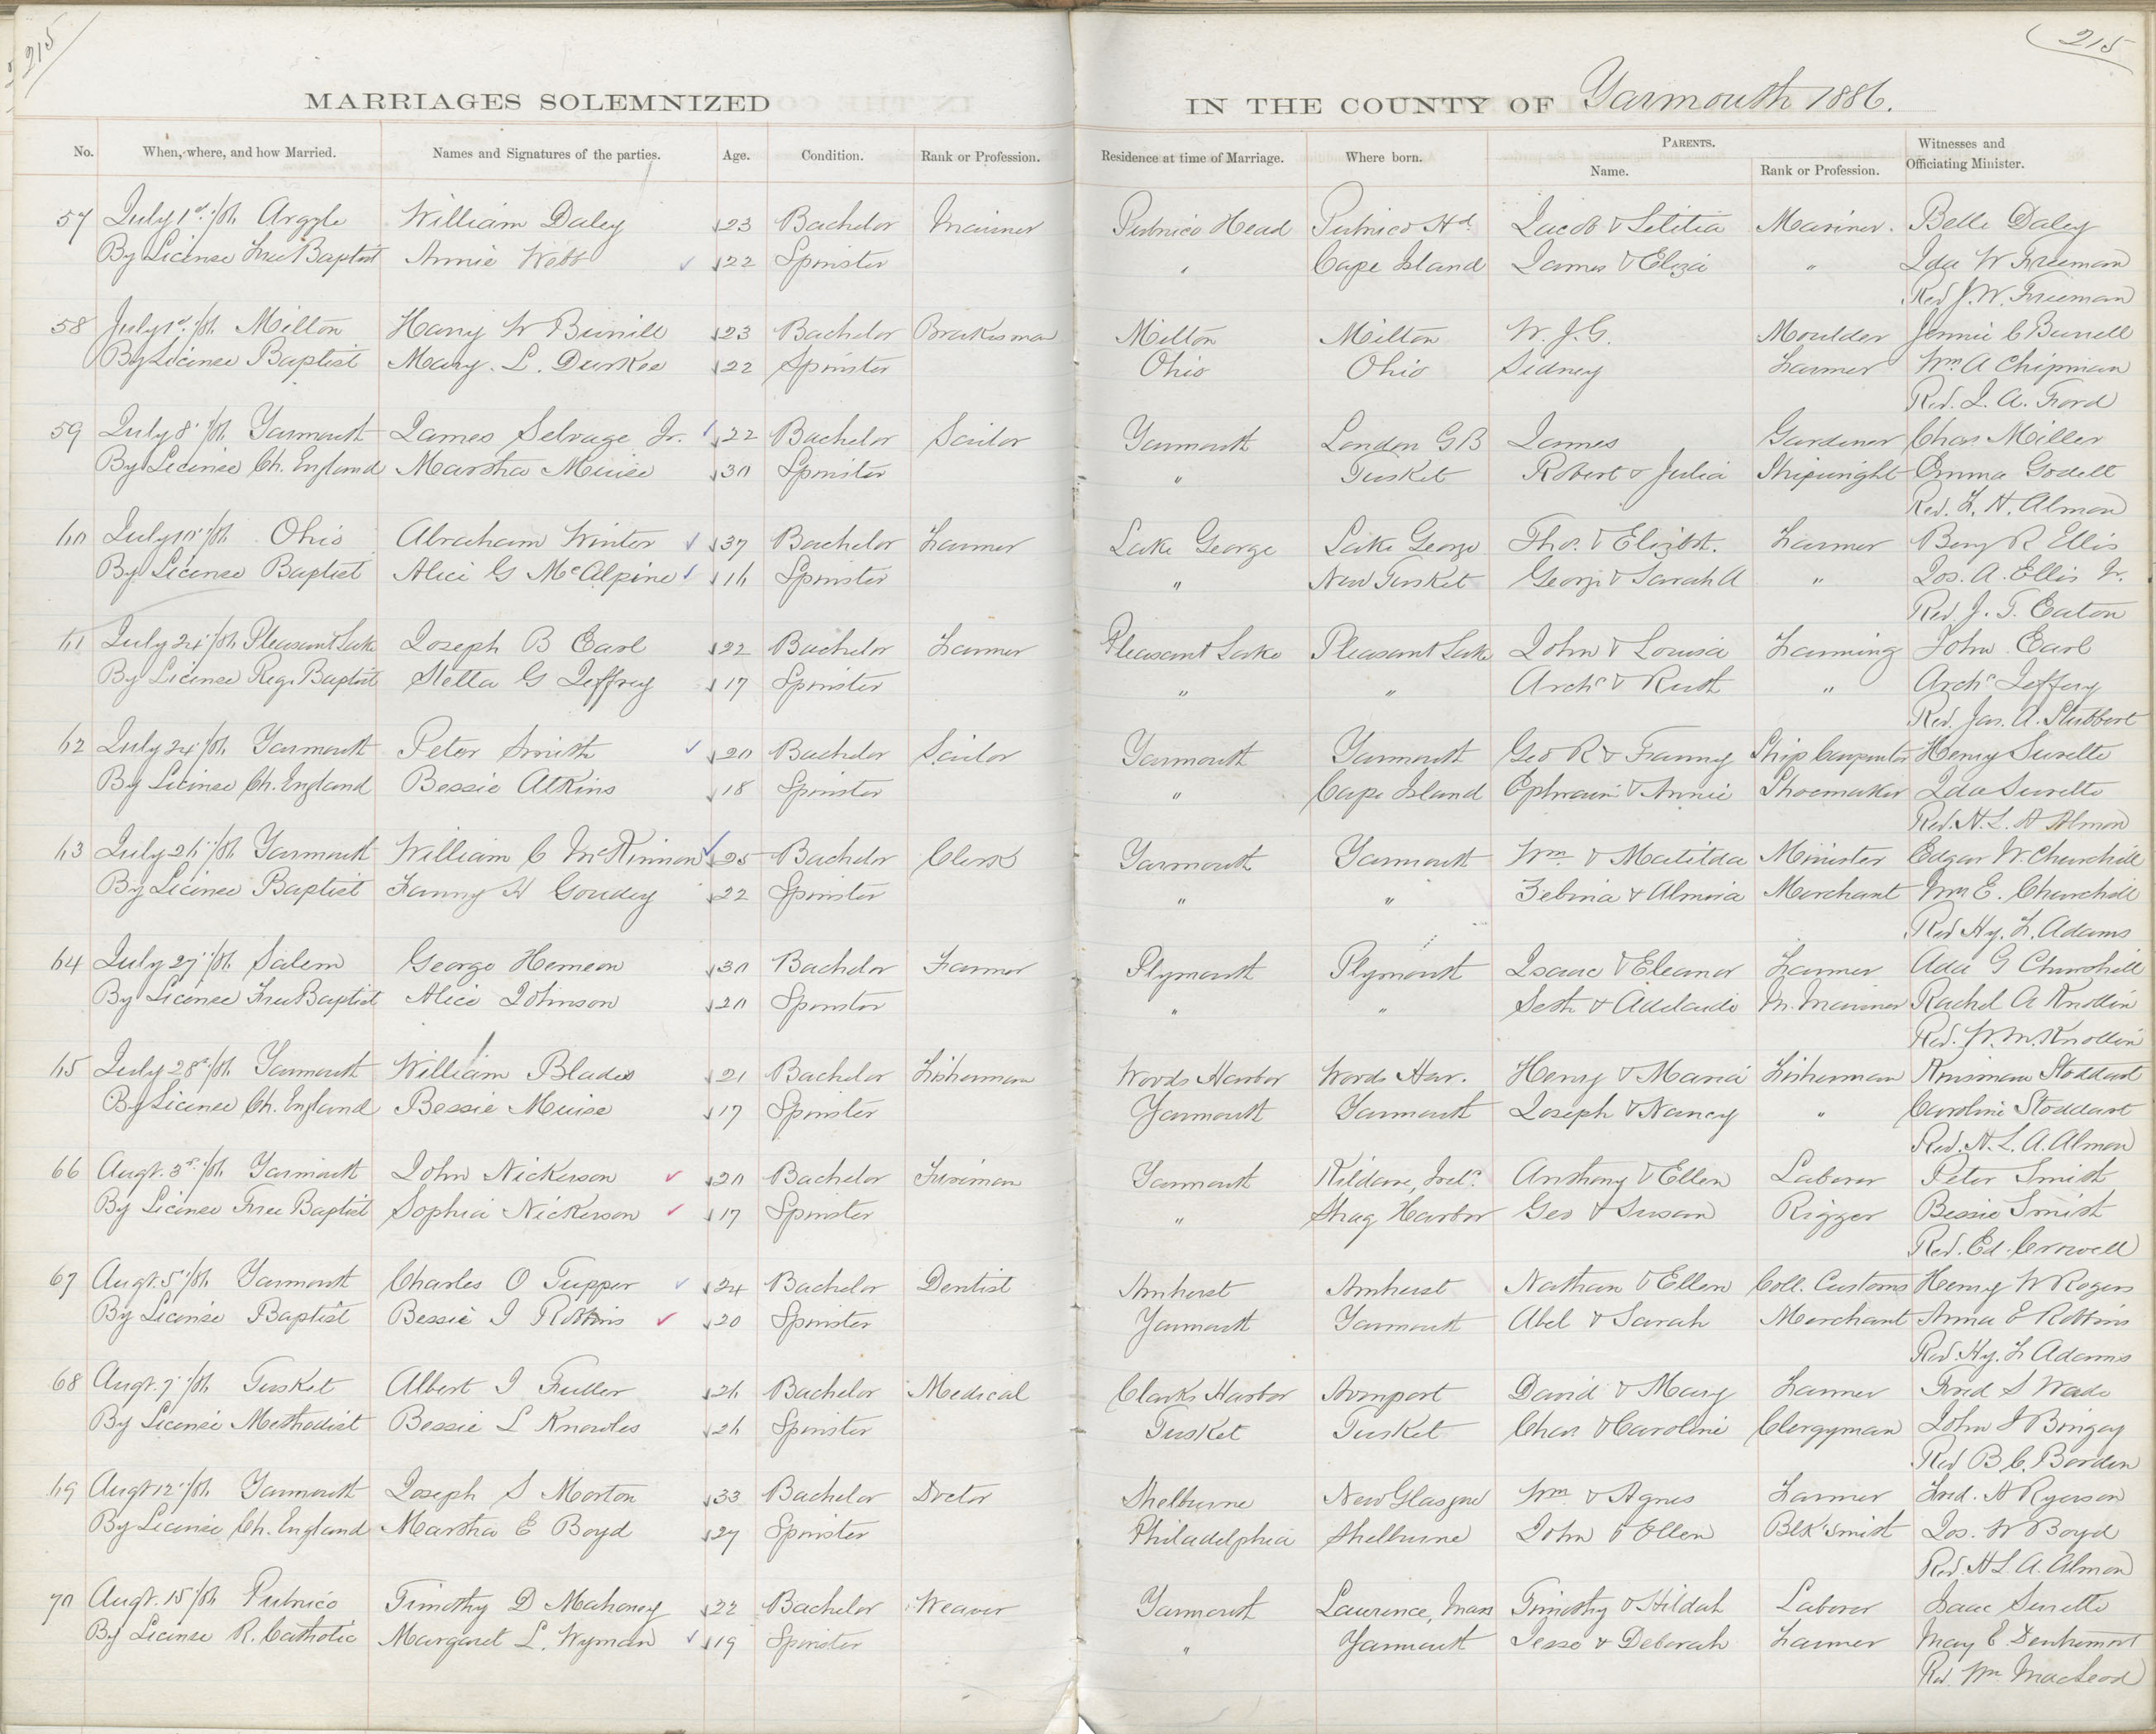 215
215
MARRIAGES SOLEMNIZED IN THE COUNTY OF Yarmouth 1886.
No. When, where, and how Married. Names and Signatures of the parties. Age. Condition. Rank or Profession. Residence at time of Marriage. Where born. PARENTS. Name. Rank or Profession. Witnesses and Officiating Minister.
57 July 1st /86 Argyle William Daley 23 Bachelor Mariner Pubnico Head Pubnico Hd. Jacob & Letitia Mariner. Belle Daley
By License Free Baptist Annie Webb 22 Spinster " Cape Island James & Eliza " Ida W Freeman
Rev J. W. Freeman
58 July 1st /86 Milton Harry W Burrill 23 Bachelor Brakesman Milton Milton W. J. G. Moulder Jennie C Burrell
By License Baptist Mary. L. Durkee 22 Spinster Ohio Ohio Sidney Farmer Wm A Chipman
Rev. J. A. Ford
59 July 8 /86 Yarmouth James Selvage Jr. 22 Bachelor Sailor Yarmouth London G B James Gardener Chas Miller
By License Ch. England Martha Muise 30 Spinster " Tusket Robert & Julia Shipwright Emma Godell
Rev. H. Almon
60 July 10 /86 Ohio Abraham Winter 37 Bachelor Farmer Lake George Lake George Thos. & Elizbt. Farmer Benj R Ellis
By License Baptist Alice G McAlpine 16 Spinster " New Tusket George & Sarah A " Jos. A. Ellis Jr.
Rev J. T. Eaton
61 July 24 /86 Pleasant Lake Joseph B Earl 22 Bachelor Farmer Pleasant Lake Pleasant Lake John & Louisa Farming John Earl
By License Reg. Baptist Stella G Jeffrey 17 Spinster " " Archd & Ruth " Archd Jeffery
Rev. Jas. A. Stubbert
62 July 24 /86 Yarmouth Peter Smith 20 Bachelor Sailor Yarmouth Yarmouth Geo R & Franny Ship Carpenter Henry Surette
By License Ch. England Bessie Atkins 18 Spinster " Cape Island Ephraim & Annie Shoemaker Ida Surette
Rev. H. L. A Almon
63 July 26 /86 Yarmouth William C McKinnon 25 Bachelor Clerk Yarmouth Yarmouth Wm. & Matilda Minister Edgar W. Churchill
By License Baptist Fanny H Goudey 22 Spinster " " Zebina & Almira Merchant Wm E. Churchill
Rev Hy. F. Adams
64 July 27 /86 Salem George Hemeon 30 Bachelor Farmer Plymouth Plymouth Isaac & Eleanor Farmer Ada G Churchill
By License Free Baptist Alice Johnson 20 Spinster " " Seth & Adelaide M. Mariner Rachel A Knollin
Rev. W. M. Knollin
65 July 28 /86 Yarmouth William Blades 21 Bachelor Fisherman Woods Harbor Woods Har. Henry & Maria Fisherman Kinsman Stoddart
By License Ch. England Bessie Muise 17 Spinster Yarmouth Yarmouth Joseph & Nancy " Caroline Stoddart
Rev. H. L. A. Almon
66 Augt. 3rd /86 Yarmouth John Nickerson 20 Bachelor Fireman Yarmouth Kildare, Irel. Anthony & Ellen Laborer Peter Smith
By License Free Baptist Sophia Nickerson 17 Spinster " Shag Harbor Geo & Susan Rigger Bessie Smith
Rev. Ed. Crowell
67 Augt. 5 /86 Yarmouth Charles O Tupper 24 Bachelor Dentist Amherst Amherst Nathan & Ellen Coll. Customs Henry W Rogers
By License Baptist Bessie J Robbins 20 Spinster Yarmouth Yarmouth Abel & Sarah Merchant Anna E Robbins
Rev. Hy. F Adams
68 Augt. 7 /86 Tusket Albert I Fuller 26 Bachelor Medical Clarks Harbor Avonport David & Mary Farmer Fred S Wade
By License Methodist Bessie L Knowles 26 Spinster Tusket Tusket Chas & Caroline Clergyman John J Bingay
Rev B. C. Borden
69 Augt 12 /86 Yarmouth Joseph S Morton 33 Bachelor Doctor Shelburne New Glasgow Wm & Agnes Farmer Fred. A Ryerson
By License Ch. England Martha E Boyd 27 Spinster Philadelphia Shelburne John & Ellen Blk'smith Jos. W Boyd
Rev. H L. A. Almon
70 Augt. 15 /86 Pubnico Timothy D Mahoney 22 Bachelor Weaver Yarmouth Lawrence, Mass Timothy & Hildah Laborer Isaac Surette
By License R. Catholic Margaret L. Wyman 19 Spinster " Yarmouth Jesse & Deborah Farmer May E
Rev. Wm MacLeod